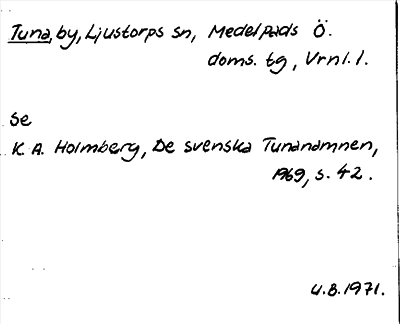 Tuna, by, Ljustorps sn, Medelpads Ö.
doms. tg, Vrnl. l.
Se
K. A. Holmberg, De svenska Tunanamnen,
1969, s. 42.
U.B. 1971.